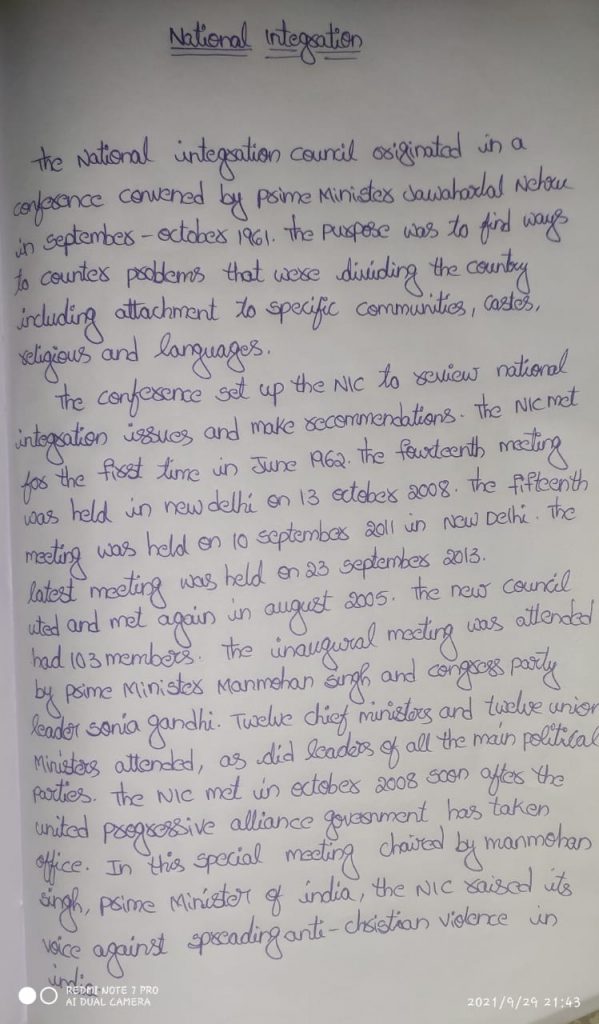 National Integration
The National integration council originated in a
conference convened by prime Minister Jawaharlal Nehru
in september - october 1961. The purpose was to find ways
to counter problems that were dividing the country
including attachment to specific communities, castes,
religious and languages.
The conference set up the NIC to review national
integration issues and make recommendations. The NIC met
for the first time in June 1962. The fourteenth meeting
was held in new delhi on 13 october 2008. The fifteenth
meeting was held on 10 september 2011 in New Delhi. The
latest meeting was held on 23 september 2013.
uted and met again in august 2005. The new council
had 103 members. The inaugural meeting was attended
by prime Minister Manmohan singh and congress party
leader sonia gandhi. Twelve chief ministers and twelve union
Ministers attended, as did leaders of all the main political
parties. The NIC met in october 2008 soon after the
united progressive alliance government has taken
office. In this special meeting chaired by manmohan
singh, prime Minister of india, the NIC raised its
voice against spreading anti-christian violence in
india
REDMI NOTE 7 PRO
AI DUAL CAMERA
2021/9/29 21:43